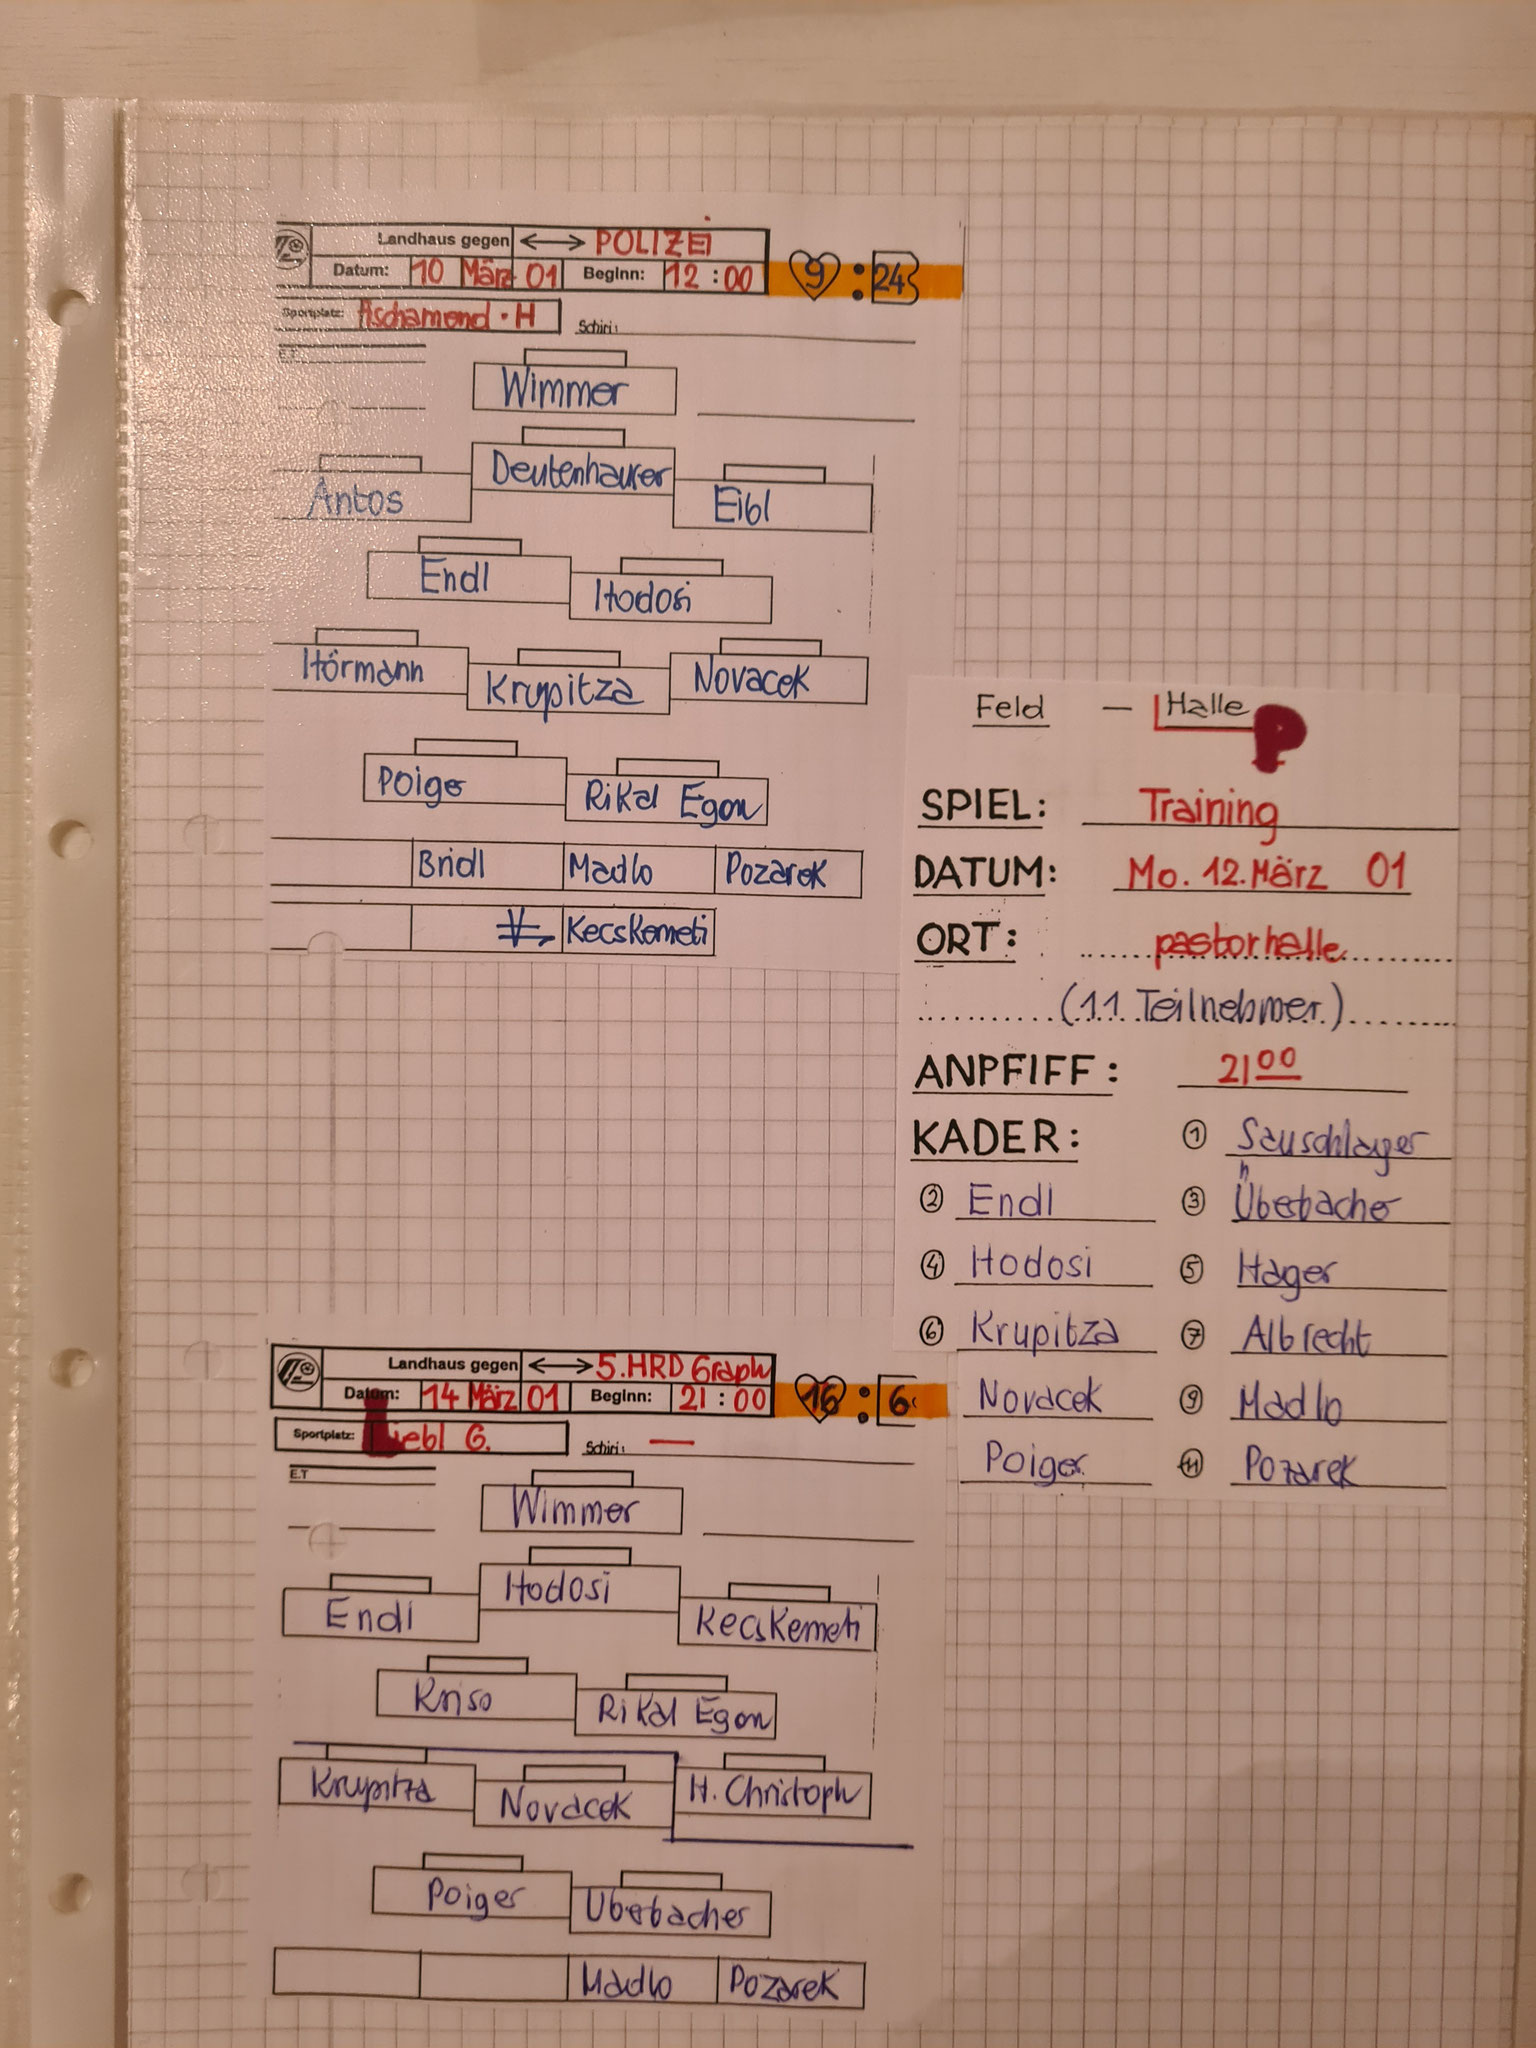 Landhaus gegen ⟷ POLIZEI
Datum: 10 März 01 Beginn: 12:00 9 : 24
Sportplatz: Aschamond · H Schiri:
E.T
Wimmer
Deutenhaurer
Antos Eibl
Endl Hodosi
Hörmann Krupitza Novacek
Poiger Rikal Egon
Bridl Madlo Pozarek
Kecskemeti
Feld — Halle P
SPIEL: Training
DATUM: Mo. 12. März 01
ORT: pastorhalle
(11 Teilnehmer)
ANPFIFF: 21 00
KADER: 1 Sauschlager
2 Endl 3 Überbacher
4 Hodosi 5 Hager
6 Krupitza 7 Albrecht
Novacek 9 Madlo
Poiger 11 Pozarek
Landhaus gegen ⟷ 5.HRD Graph
Datum: 14 März 01 Beginn: 21:00 16 : 6
Sportplatz: Liebl G. Schiri: —
E.T
Wimmer
Endl Hodosi Kecskemeti
Kriso Rikal Egon
Krupitza Novacek H. Christoph
Poiger Uberbacher
Madlo Pozarek